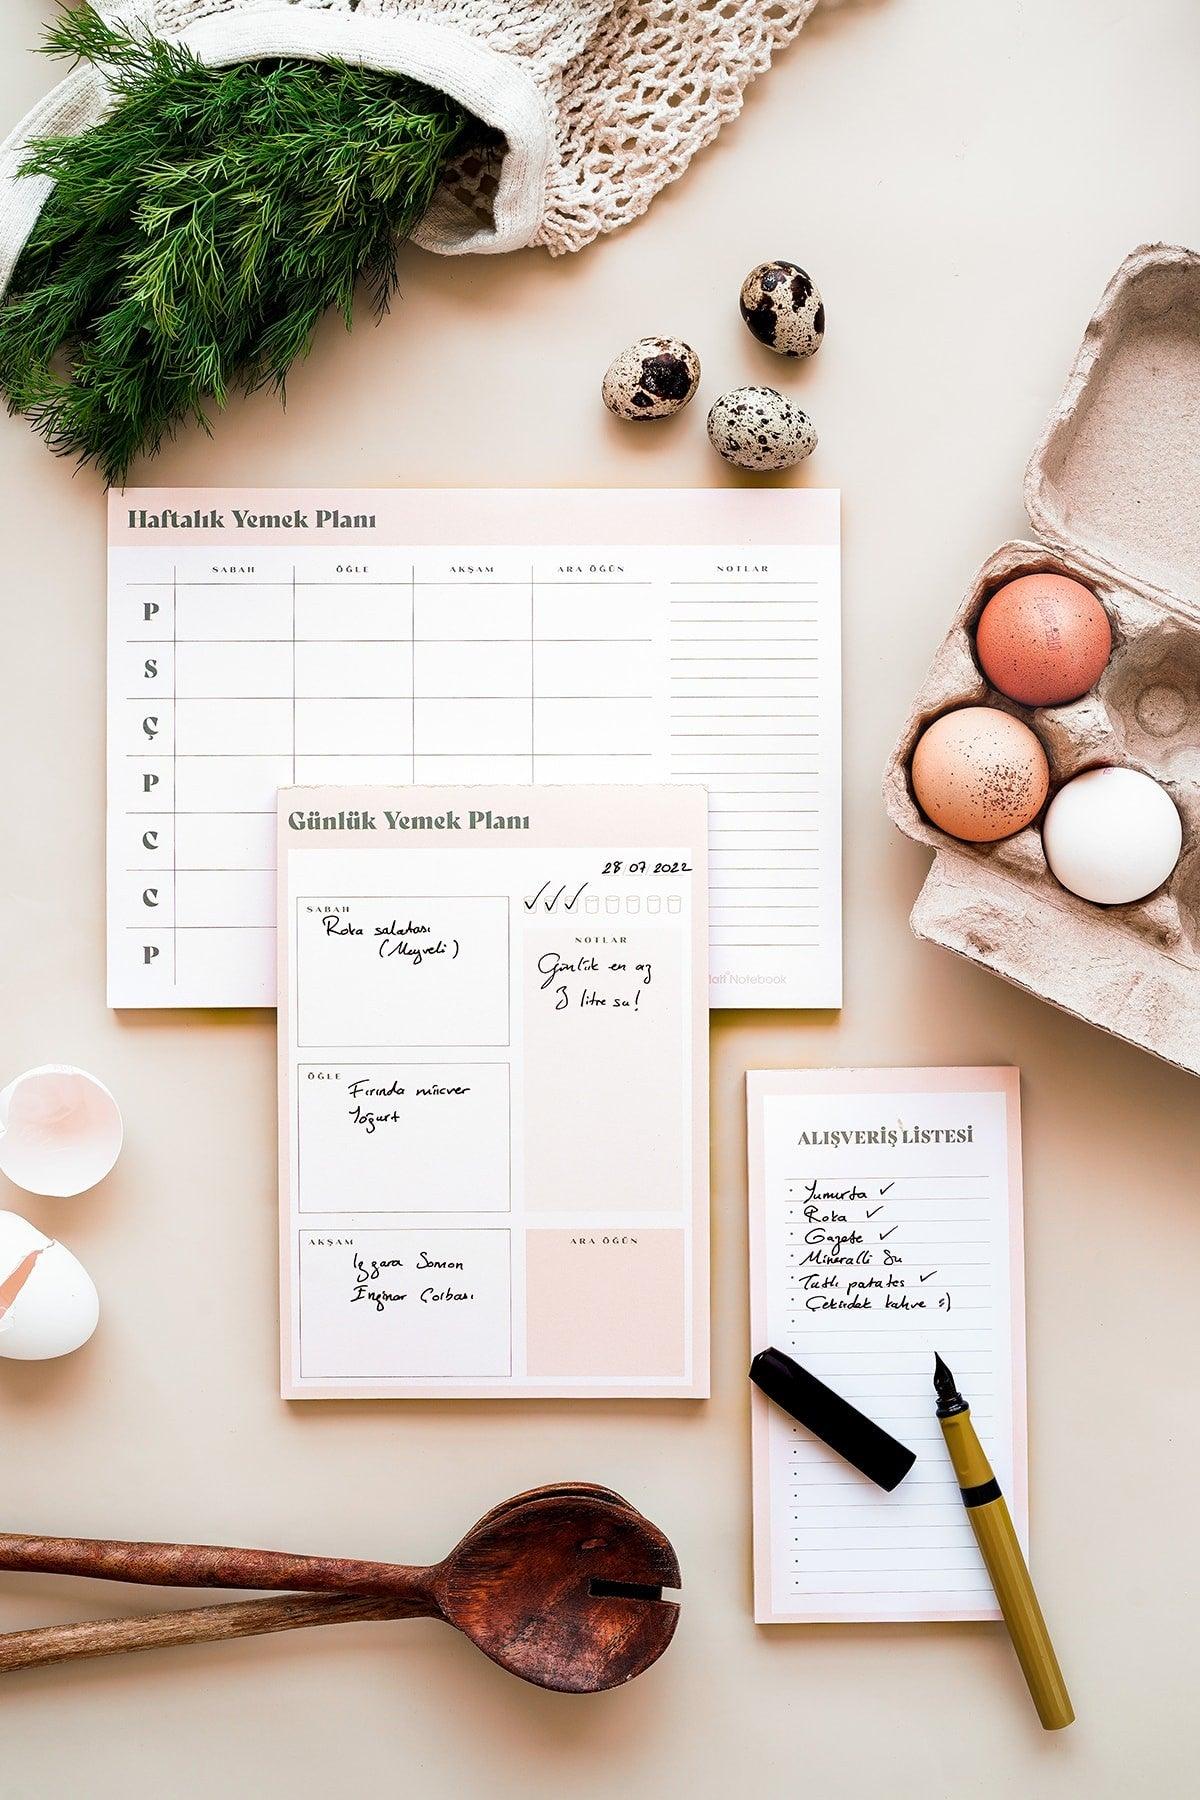 Haftalık Yemek Planı
SABAH ÖĞLE AKŞAM ARA ÖĞÜN NOTLAR
P
S
Ç
P
C
C
P
Notebook
Günlük Yemek Planı
28 07 2022
SABAH
Roka salatası
(Meyveli)
NOTLAR
Günlük en az
3 litre su!
ÖĞLE
Fırında mücver
Yoğurt
AKŞAM
Izgara Somon
Enginar Çorbası
ARA ÖĞÜN
ALIŞVERİŞ LİSTESİ
· Yumurta ✓
· Roka ✓
· Gazete ✓
· Mineralli Su
· Tatlı patates ✓
· Çekirdek kahve :)